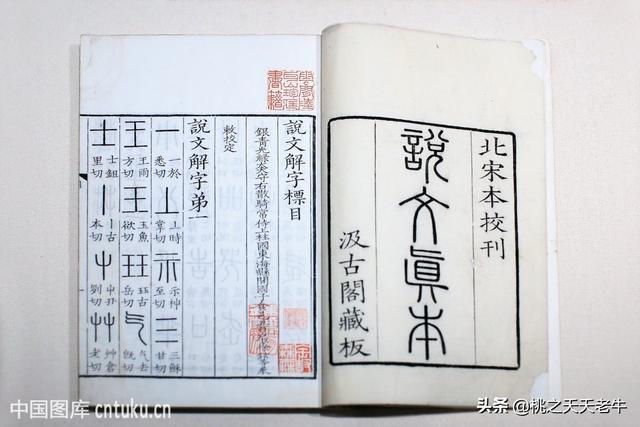 北宋本校刊
說文眞本
汲古閣藏板
說文解字標目
銀青光祿大夫守右散騎常侍上柱國東海縣開國子食邑五百戶
敕校定
說文解字弟一
一 一於悉切 丄 丄時掌切 示 示神至切 三 三穌甘切
王 王雨方切 王 玉魚欲切 玨 玨古岳切 气 气去既切
士 士鉏里切 丨 丨古本切 屮 屮丑切 艸 艸倉老切
中国图库 cntuku.cn
头条 @桃之夭夭老牛